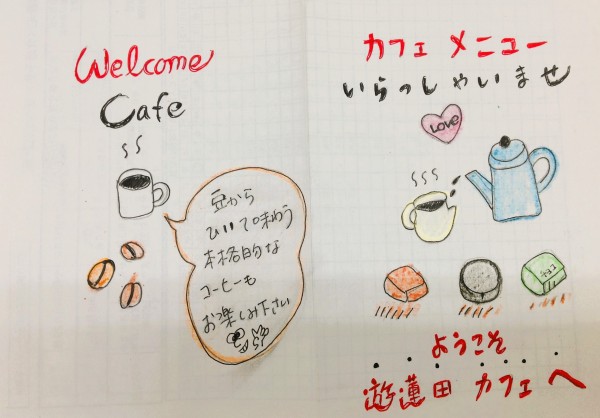 Welcome
Cafe
豆から
ひいて味わう
本格的な
コーヒーも
お楽しみ下さい
カフェ メニュー
いらっしゃいませ
LOVE
チョコ
ようこそ
遊蓮田 カフェ へ